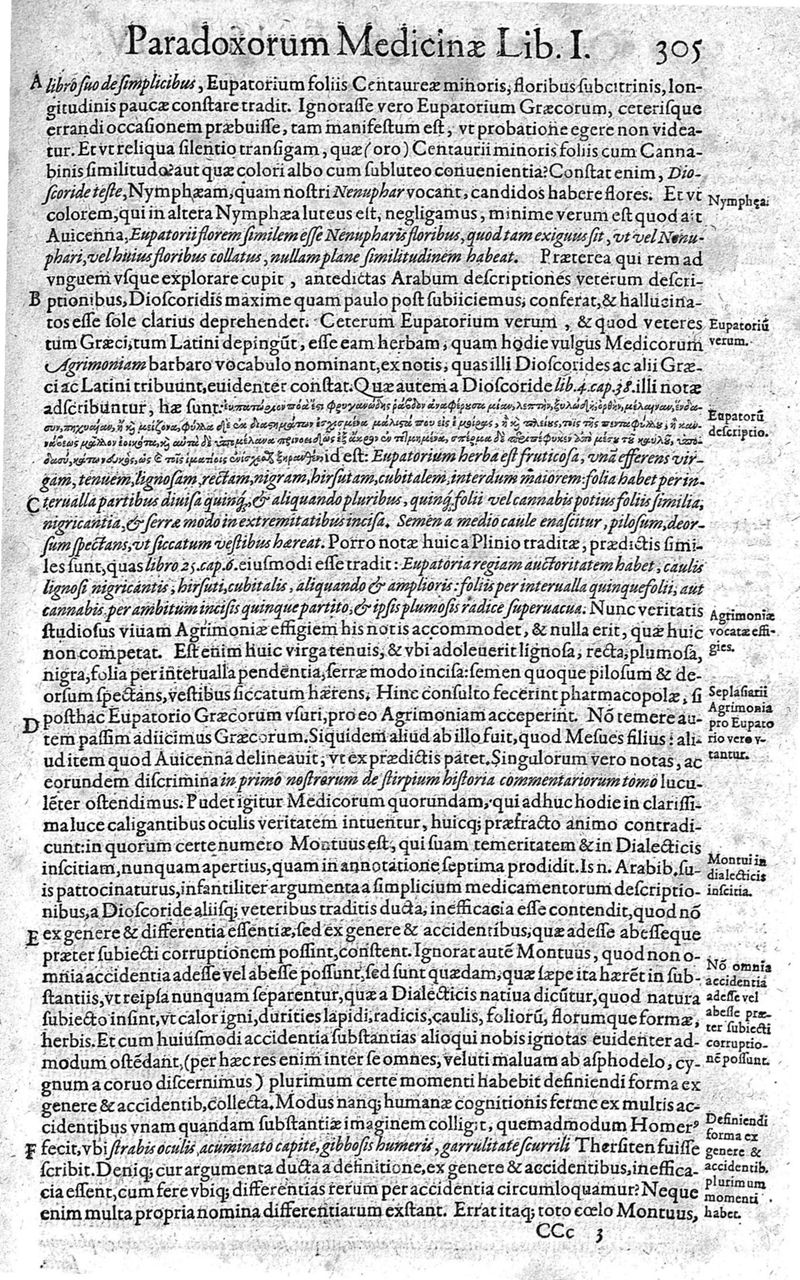 Paradoxorum Medicinæ Lib. I. 305
A libro suo de simplicibus, Eupatorium foliis Centaureæ minoris, floribus subcitrinis, lon-
gitudinis paucæ constare tradit. Ignorasse vero Eupatorium Græcorum, ceterisque
errandi occasionem præbuisse, tam manifestum est, vt probatione egere non videa-
tur. Et vt reliqua silentio transigam, quæ (oro) Centaurii minoris foliis cum Canna-
binis similitudo? aut quæ colori albo cum subluteo conuenientia? Constat enim, Dio-
scoride teste, Nymphæam, quam nostri Nenuphar vocant, candidos habere flores. Et vt
Nymphęa.
colorem, qui in altera Nymphæa luteus est, negligamus, minime verum est quod ait
Auicenna, Eupatorii florem similem esse Nenupharis floribus, quod tam exiguus sit, vt vel Nenu-
phari, vel huius floribus collatus, nullam plane similitudinem habeat. Præterea qui rem ad
vnguem vsque explorare cupit, antedictas Arabum descriptiones veterum descri-
B ptionibus, Dioscoridis maxime quam paulo post subiiciemus, conferat, & hallucina-
tos esse sole clarius deprehendet. Ceterum Eupatorium verum, & quod veteres
Eupatoriū
tum Græci, tum Latini depingūt, esse eam herbam, quam hodie vulgus Medicorum
verum.
Agrimoniam barbaro vocabulo nominant, ex notis, quas illi Dioscorides ac alii Græ-
ci ac Latini tribuunt, euidenter constat. Quæ autem a Dioscoride lib. 4. cap. 38. illi notæ
adscribuntur, hæ sunt:
Eupatorū
descriptio.
id est: Eupatorium herba est fruticosa, vnā efferens vir-
gam, tenuem, lignosam, rectam, nigram, hirsutam, cubitalem, interdum maiorem: folia habet per in-
C terualla partibus diuisa quinq;, & aliquando pluribus, quinq; folii vel cannabis potius foliis similia,
nigricantia, & serræ modo in extremitatibus incisa. Semen a medio caule enascitur, pilosum, deor-
sum spectans, vt siccatum vestibus hæreat. Porro notæ huic a Plinio traditæ, prædictis simi-
les sunt, quas libro 25. cap. 6. eiusmodi esse tradit: Eupatoria regiam auctoritatem habet, caulis
lignosi nigricantis, hirsuti, cubitalis, aliquando & amplioris: foliis per interualla quinquefolii, aut
cannabis per ambitum incisis quinquepartito, & ipsis plumosis radice superuacua. Nunc veritatis
Agrimoniæ
studiosus viuam Agrimoniæ effigiem his notis accommodet, & nulla erit, quæ huic
vocatæ effi-
non competat. Est enim huic virga tenuis, & vbi adoleuerit lignosa, recta, plumosa,
gies.
nigra, folia per interualla pendentia, serræ modo incisa: semen quoque pilosum & de-
orsum spectans, vestibus siccatum hærens. Hinc consulto fecerint pharmacopolæ, si
Seplasiarii
Agrimonia
D posthac Eupatorio Græcorum vsuri, pro eo Agrimoniam acceperint. Nō temere au-
pro Eupato
tem passim adiicimus Græcorum. Siquidem aliud ab illo fuit, quod Mesues filius: ali-
rio vero v-
ud item quod Auicenna delineauit, vt ex prædictis patet. Singulorum vero notas, ac
tantur.
eorundem discrimina in primo nostrorum de stirpium historia commentariorum tomo lucu-
lēter ostendimus. Pudet igitur Medicorum quorundam, qui adhuc hodie in clarissi-
ma luce caligantibus oculis veritatem intuentur, huicq; præfracto animo contradi-
cunt: in quorum certe numero Montuus est, qui suam temeritatem & in Dialecticis
Montui in
inscitiam, nunquam apertius, quam in annotatione septima prodidit. Is n. Arabib. su-
dialecticis
is patrocinaturus, infantiliter argumenta a simplicium medicamentorum descriptio-
inscitia.
nibus, a Dioscoride aliisq; veteribus traditis ducta, inefficacia esse contendit, quod nō
E ex genere & differentia essentiæ, sed ex genere & accidentibus, quæ adesse abesseque
præter subiecti corruptionem possint, constent. Ignorat autē Montuus, quod non o-
Nō omnia
mnia accidentia adesse vel abesse possunt, sed sunt quædam, quæ sæpe ita hærēt in sub-
accidentia
stantiis, vt reipsa nunquam separentur, quæ a Dialecticis natiua dicūtur, quod natura
adesse vel
subiecto insint, vt calor igni, durities lapidi, radicis, caulis, foliorū, florumque formæ,
abesse præ-
ter subiecti
herbis. Et cum huiusmodi accidentia substantias alioqui nobis ignotas euidenter ad-
corruptio-
modum ostēdant, (per hæc res enim inter se omnes, veluti maluam ab asphodelo, cy-
nē possunt.
gnum a coruo discernimus) plurimum certe momenti habebit definiendi forma ex
genere & accidentib. collecta. Modus nanq; humanæ cognitionis ferme ex multis ac-
cidentibus vnam quandam substantiæ imaginem colligit, quemadmodum Homerꝰ
Definiendi
F fecit, vbi strabis oculis, acuminato capite, gibbosis humeris, garrulitate scurrili Thersiten fuisse
forma ex
genere &
scribit. Deniq; cur argumenta ducta a definitione, ex genere & accidentibus, ineffica-
accidentib.
cia essent, cum fere vbiq; differentias rerum per accidentia circumloquamur? Neque
plurimum
momenti
enim multa propria nomina differentiarum exstant. Errat itaq; toto cœlo Montuus,
habet.
CCc 3